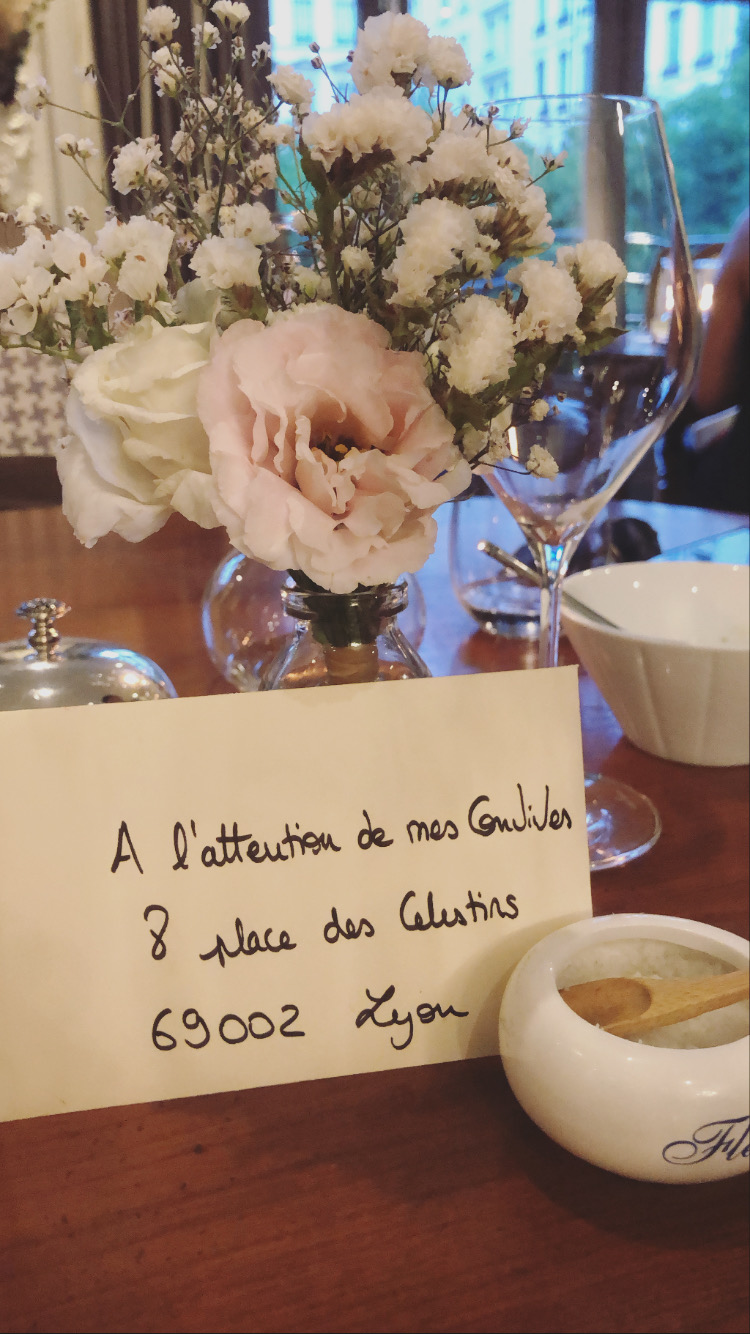 A l'attention de mes Convives
8 place des Celestins
69002 Lyon